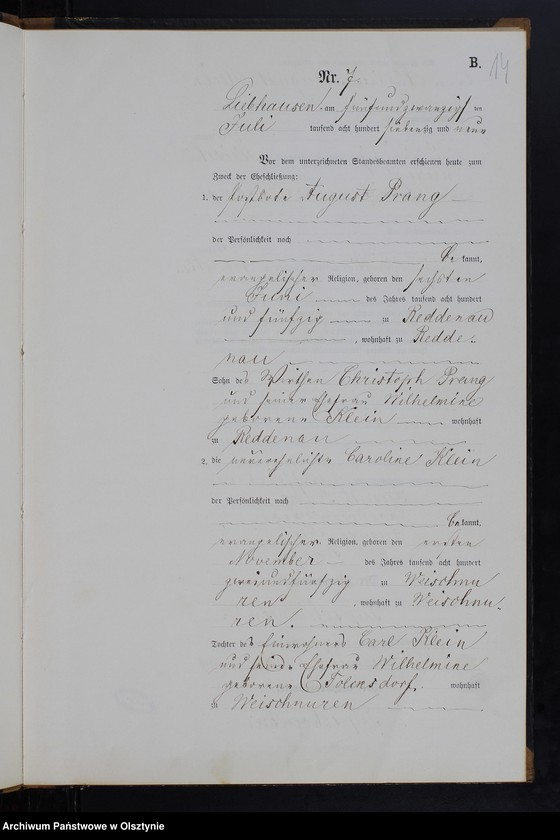 B.
14
Nr. 7.
Liebhausen am fünfundzwanzigsten
Juli tausend acht hundert siebenzig und neun
Vor dem unterzeichneten Standesbeamten erschienen heute zum
Zweck der Eheschließung:
1. der Postbote August Prang
der Persönlichkeit nach
be kannt,
evangelischer Religion, geboren den sechsten
Juni des Jahres tausend acht hundert
und fünfzig zu Reddenau
, wohnhaft zu Redde-
nau
Sohn des Wirthen Christoph Prang
und seiner Ehefrau Wilhelmine
geborene Klein wohnhaft
zu Reddenau
2. die unverehelichte Caroline Klein
der Persönlichkeit nach
be kannt,
evangelischer Religion, geboren den ersten
November des Jahres tausend acht hundert
zweiundfünfzig zu Weischnu
ren , wohnhaft zu Weischnu-
ren.
Tochter des Einwohners Carl Klein
und seiner Ehefrau Wilhelmine
geborene Tolcksdorf, wohnhaft
zu Weischnuren
Archiwum Państwowe w Olsztynie